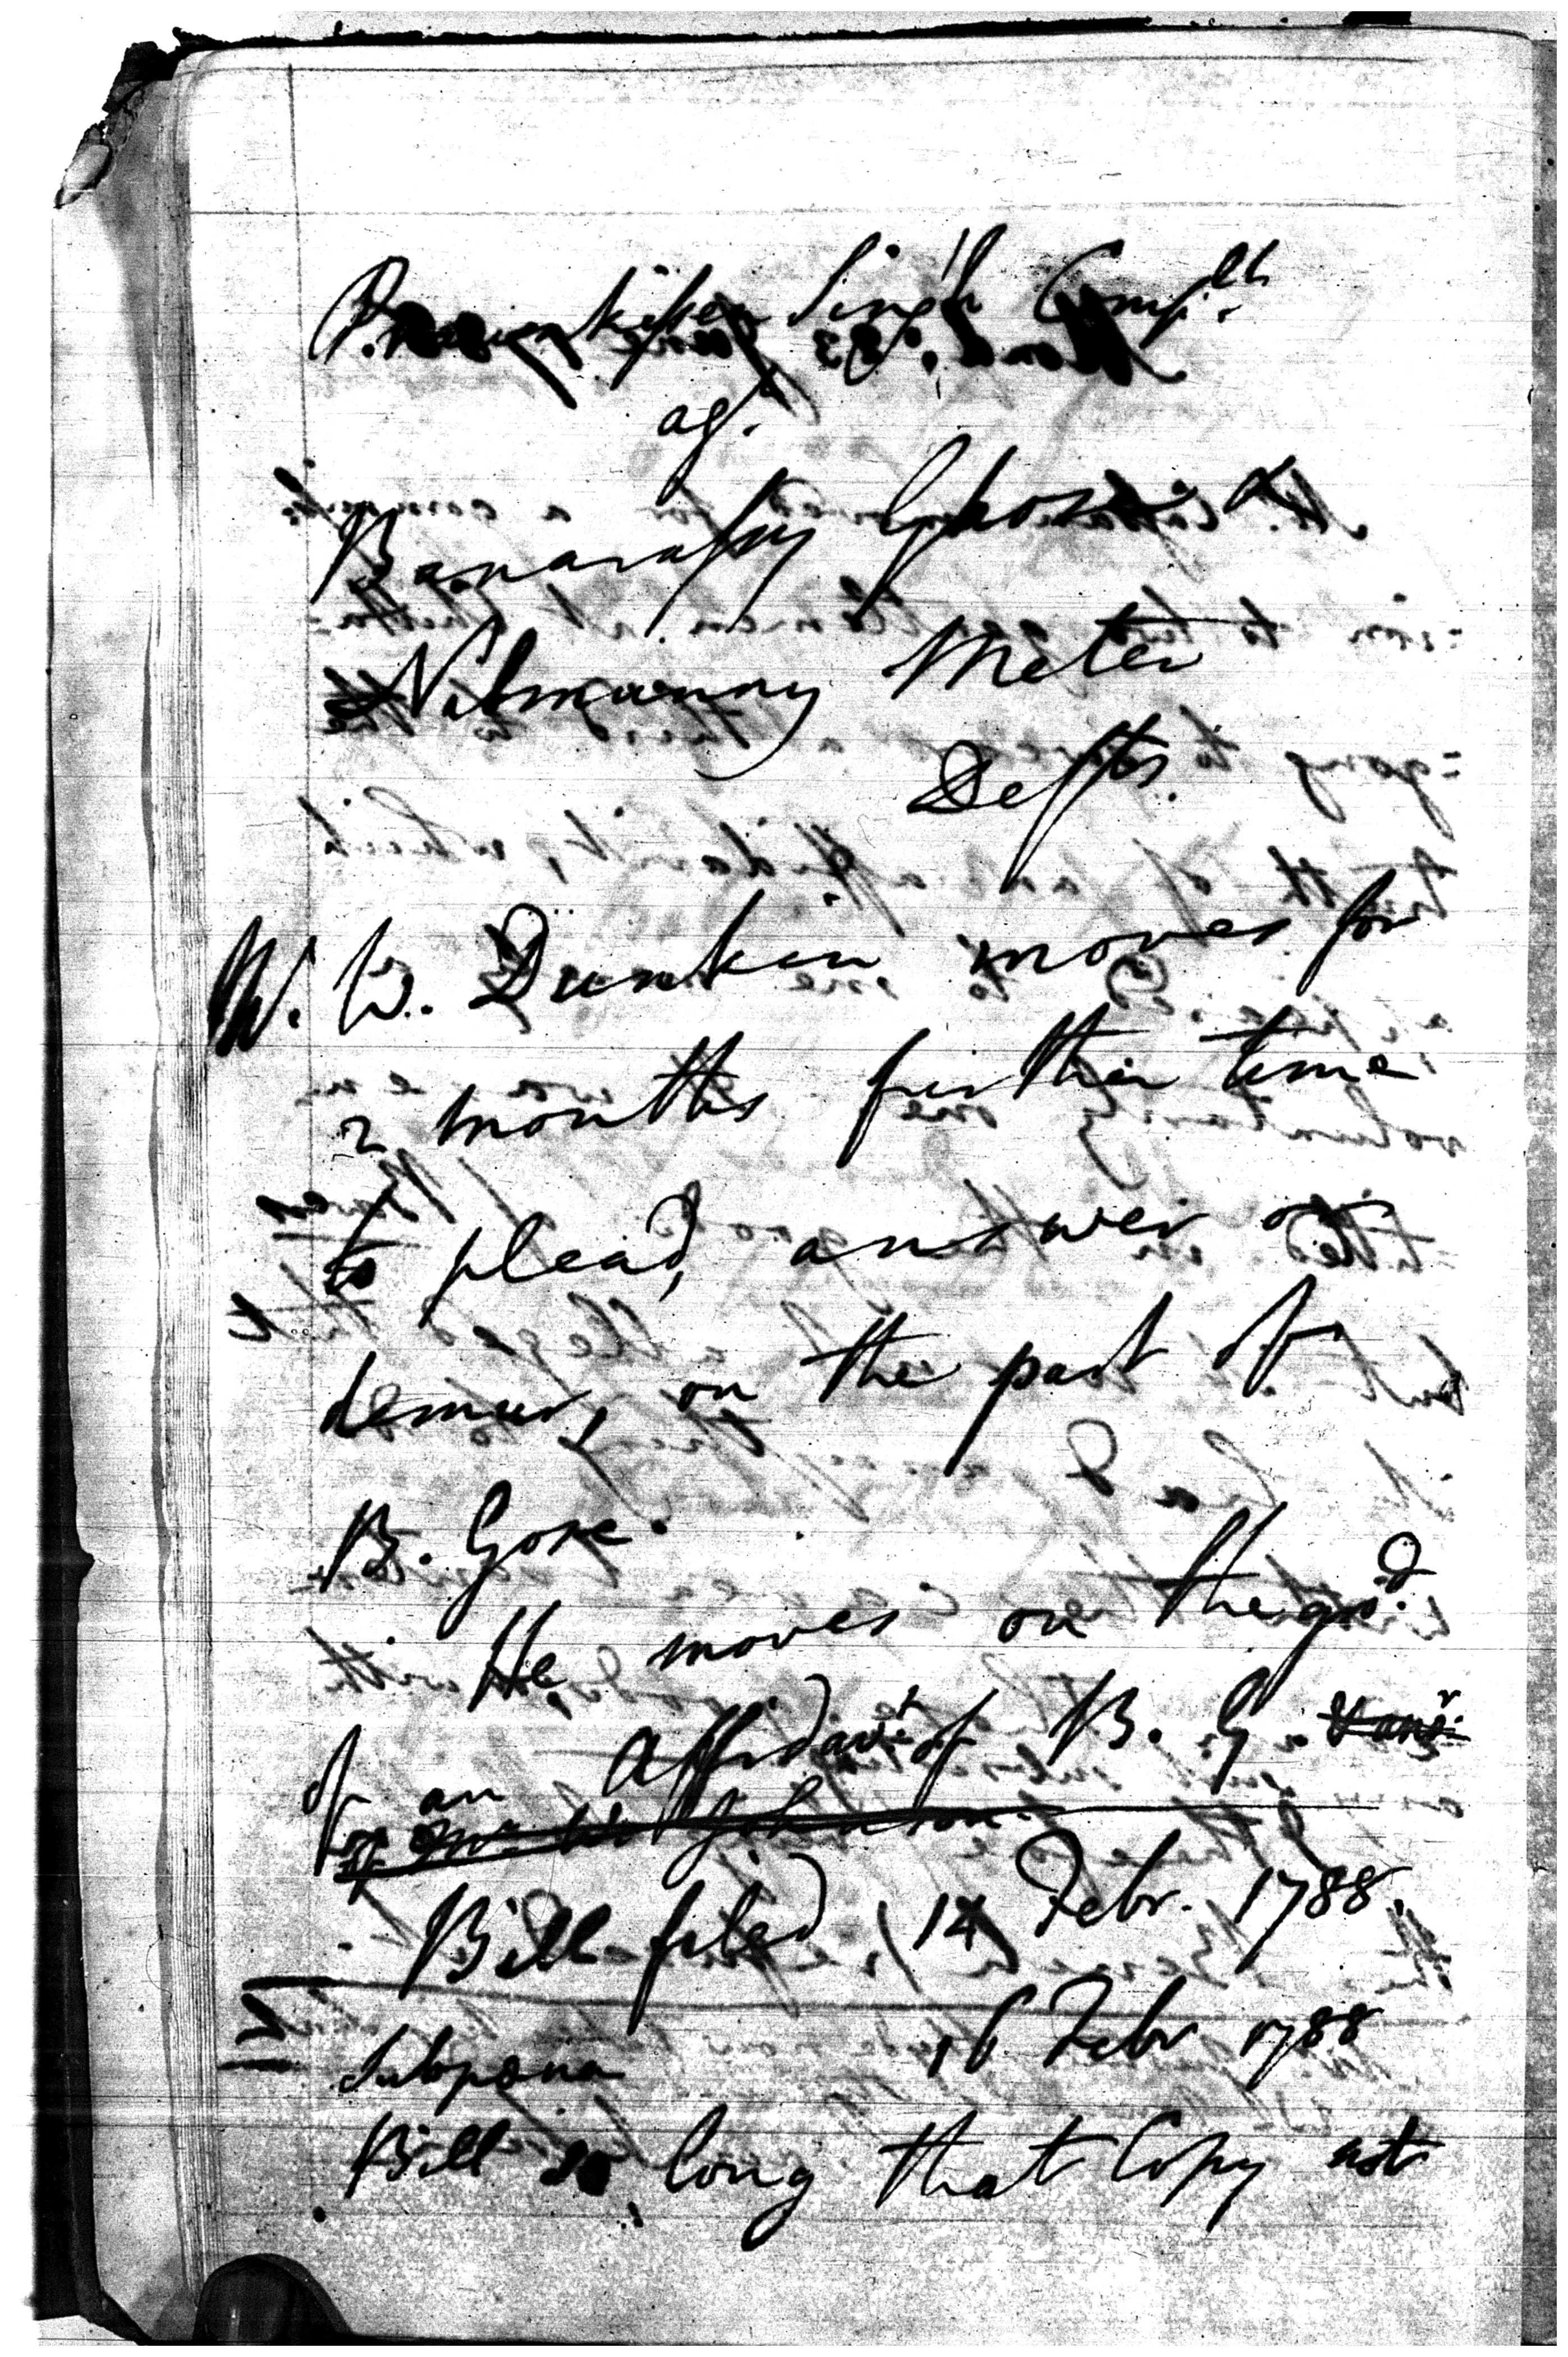 Singh Compl.t
ag.t
Banarassy Ghose &
Nilmunny Meter
Defts.
M. W. Dunkin moves for
2 months further time
to plead, answer or
demur, on the part of
B. Gose.
He moves on the gr.d
of an Affidavit of B. G.
Bill filed, 14 Febr. 1788.
Subpoena 16 Febr 1788
Bill so long that Copy not